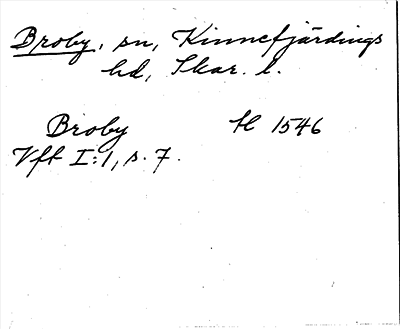 Broby, sn, Kinnefjärdings
hd, Skar. l.
Broby 1546
Vft I:1, s. 7.